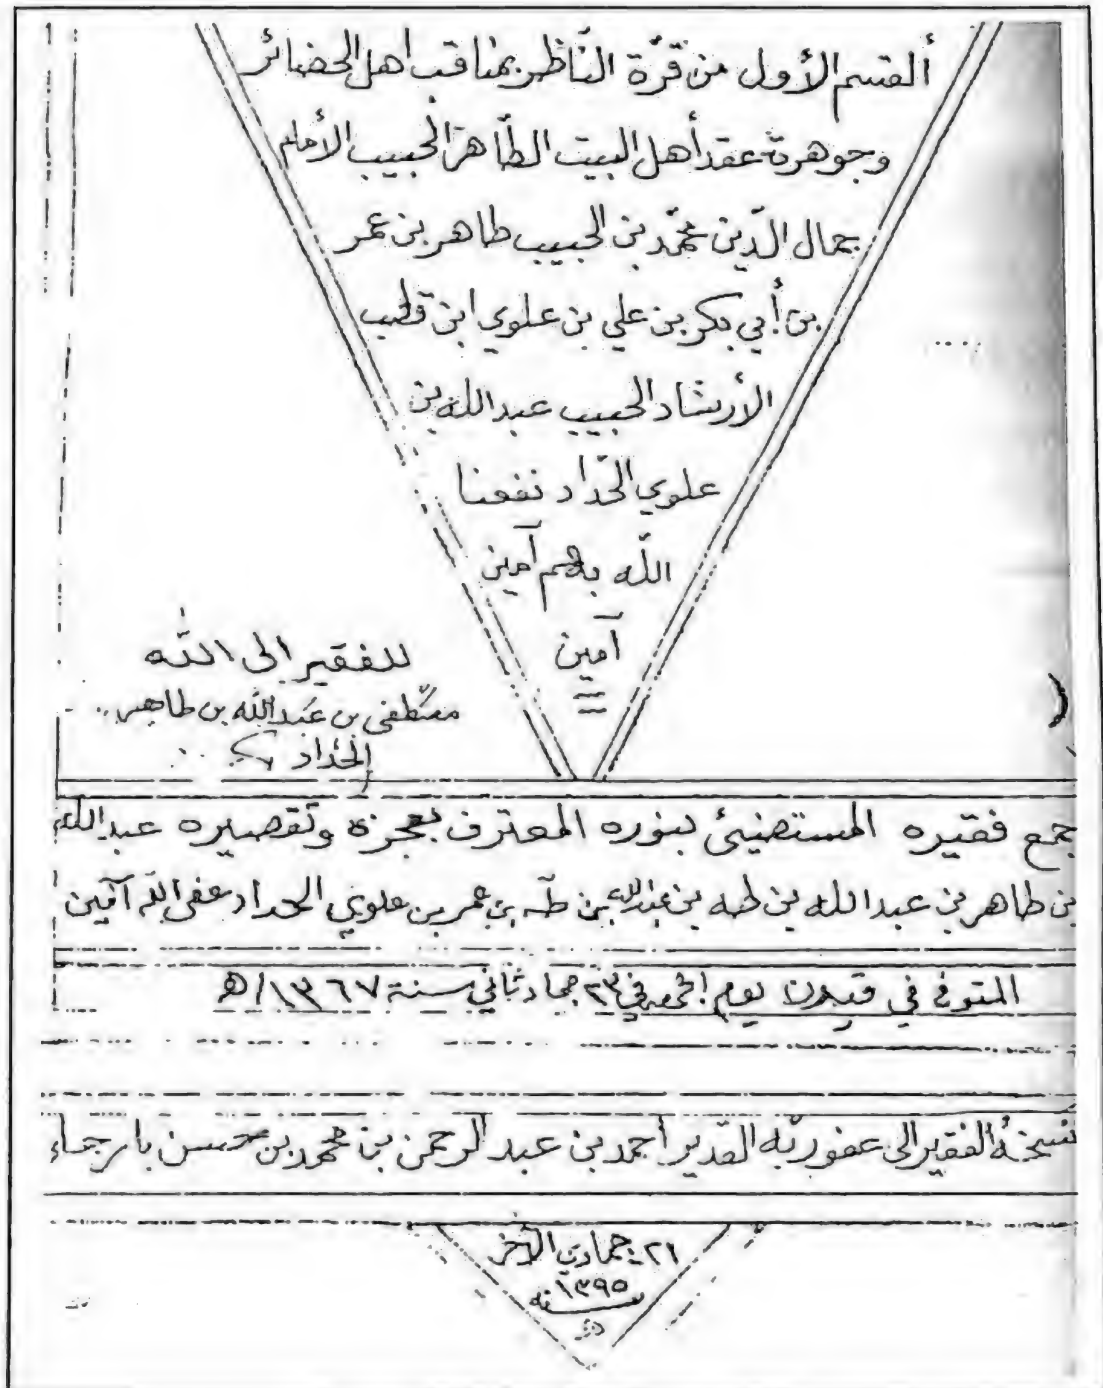 ألقسم الأول من قرّة النّاظر بمناقب اهل الحضائر
وجوهرة عقد أهل البيت الطّاهر الحبيب الأمام
جمال الدّين محمّد بن الحبيب طاهر بن عمر
بن أبي بكر بن علي بن علوي ابن قطب
الأرشاد الحبيب عبدالله بن
علوي الحدّاد نفعنا
اللّه بهم آمين
آمين
للفقير الى اللّه
مصطفى بن عبدالله بن طاهر
الحدّاد
جمع فقيره المستضيئ بنوره المعترف بعجزه وتقصيره عبدالله
بن طاهر بن عبدالله بن طه بن عبدالله بن طه بن عمر بن علوي الحداد عفى الله آمين
المتوفي في قيدون يوم الجمعه في ٢٣ جماد ثاني سنة ١٣٦٧ه
نسخهُ الفقير الى عفو ربّه القدير أحمد بن عبد الرحمن بن محمد بن حسن بارجاء
٢١ جمادي الآخر
١٣٩٥
سنه